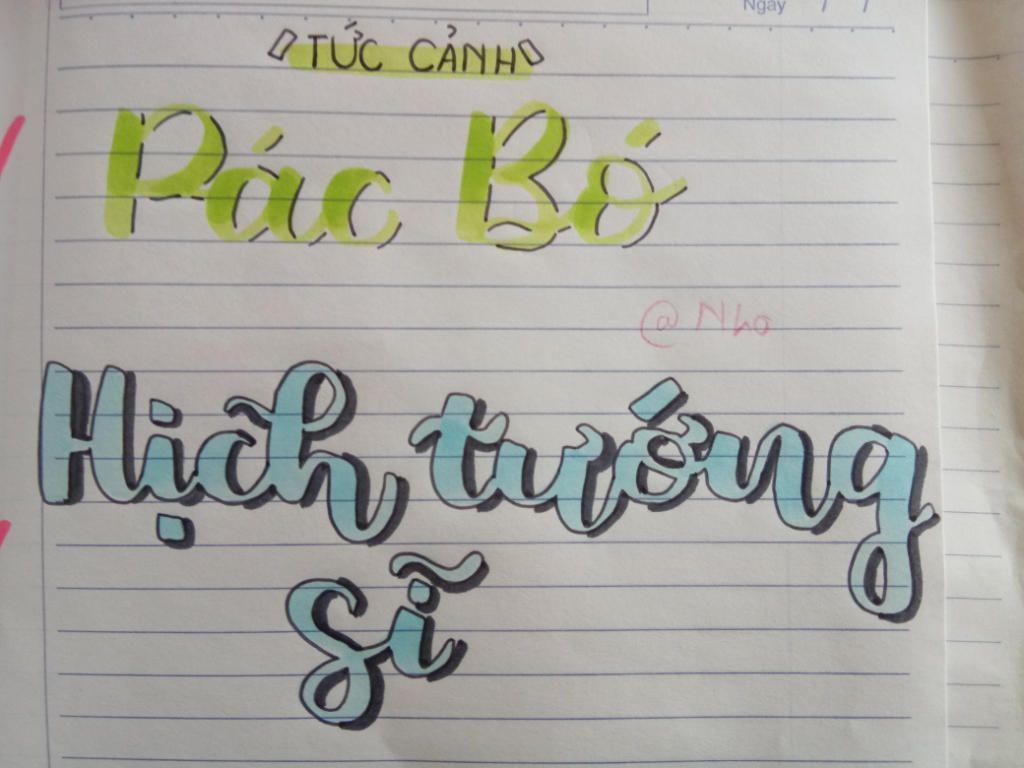 Ngày / /
TỨC CẢNH
Pác Bó
@ Nho
Hịch tướng
sĩ